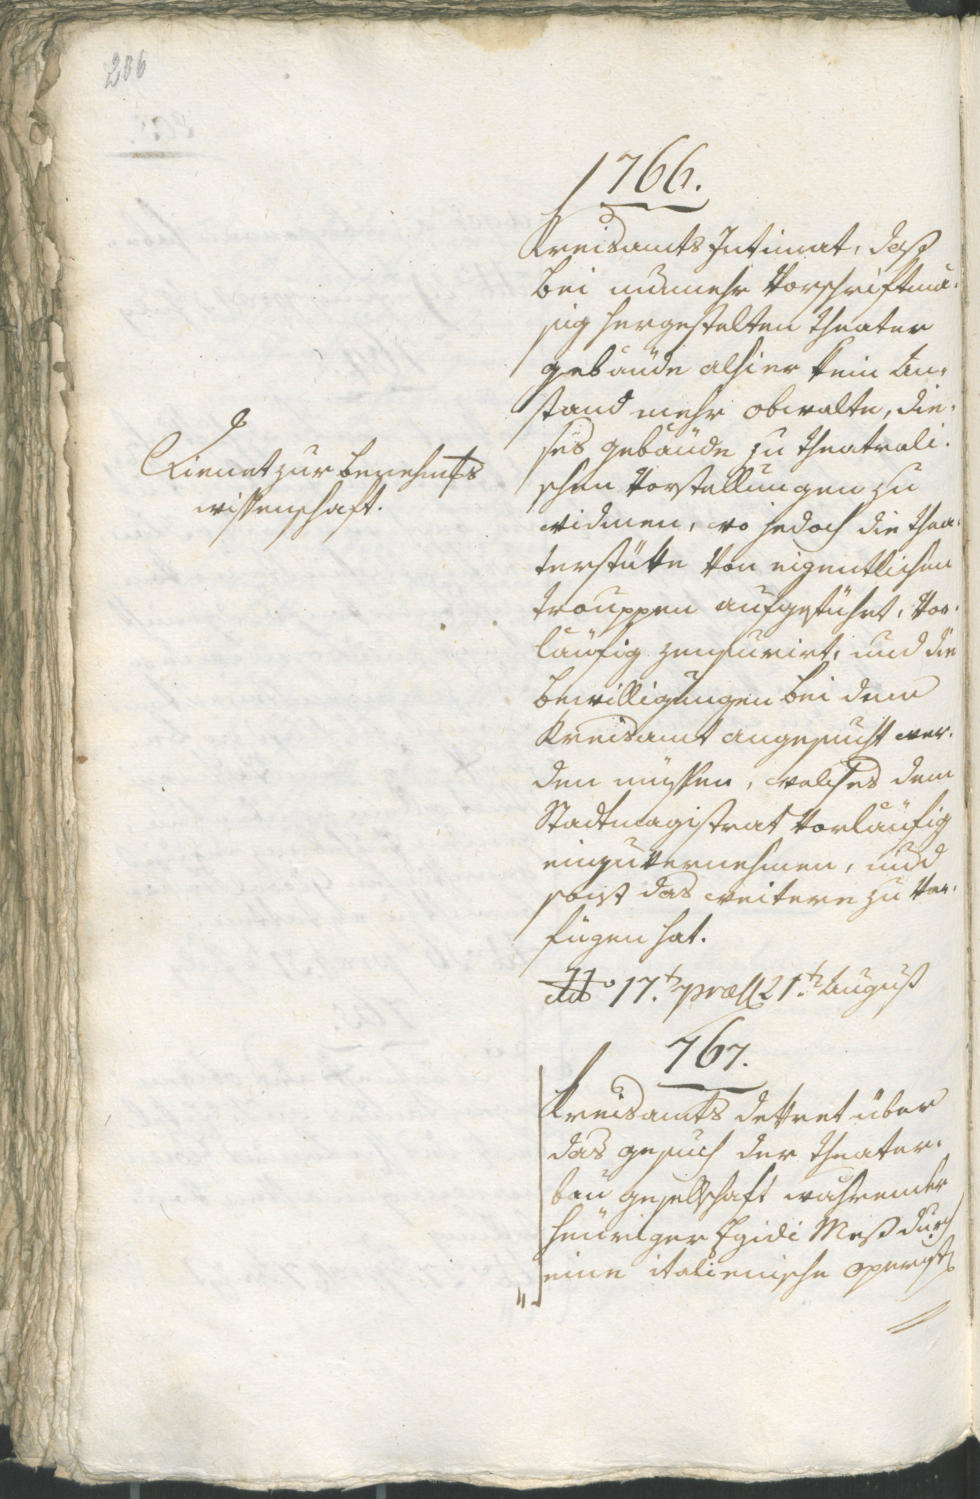 206
1766.
Kreisamts Intimat, daß
bei nunmehr Vorschriftmä-
sig hergestelten theater
gebäude alhier kein An-
stand mehr obwalte, die-
ses gebäude zu theatrali-
schen Vorstellungen zu
widmen, wo jedoch die thea-
terstükke von eigentlichen
trouppen aufgeführt, Vor-
läufig zensurirt, und die
bewilligungen bei dem
Kreisamt angesucht wer-
den müssen, welches dem
Stadtmagistrat Vorläufig
einzuvernehmen, und
sonst das weitere zu Ver-
fügen hat.
ddo 17. præs 21. August
Dienet zur benehmungs
wissenschaft.
767.
Kreisamts dekret über
das gesuch der theater-
bau gesellschaft während
heüriger Egidi Meß durch
eine italienische operist